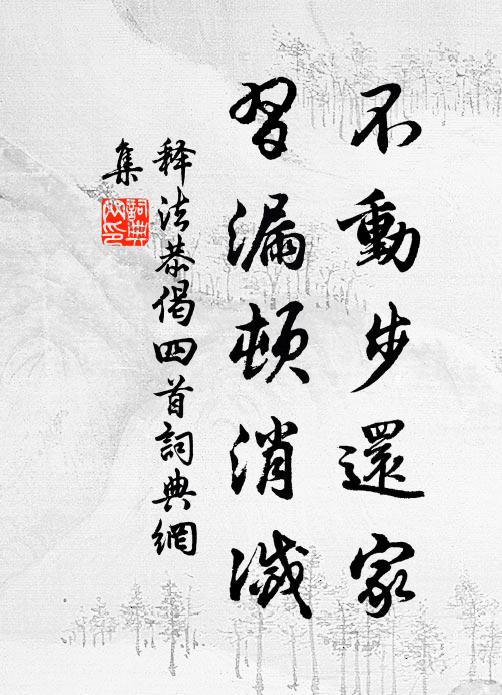 不動步還家
習漏頓消滅
释法恭偈四首詞典網
集